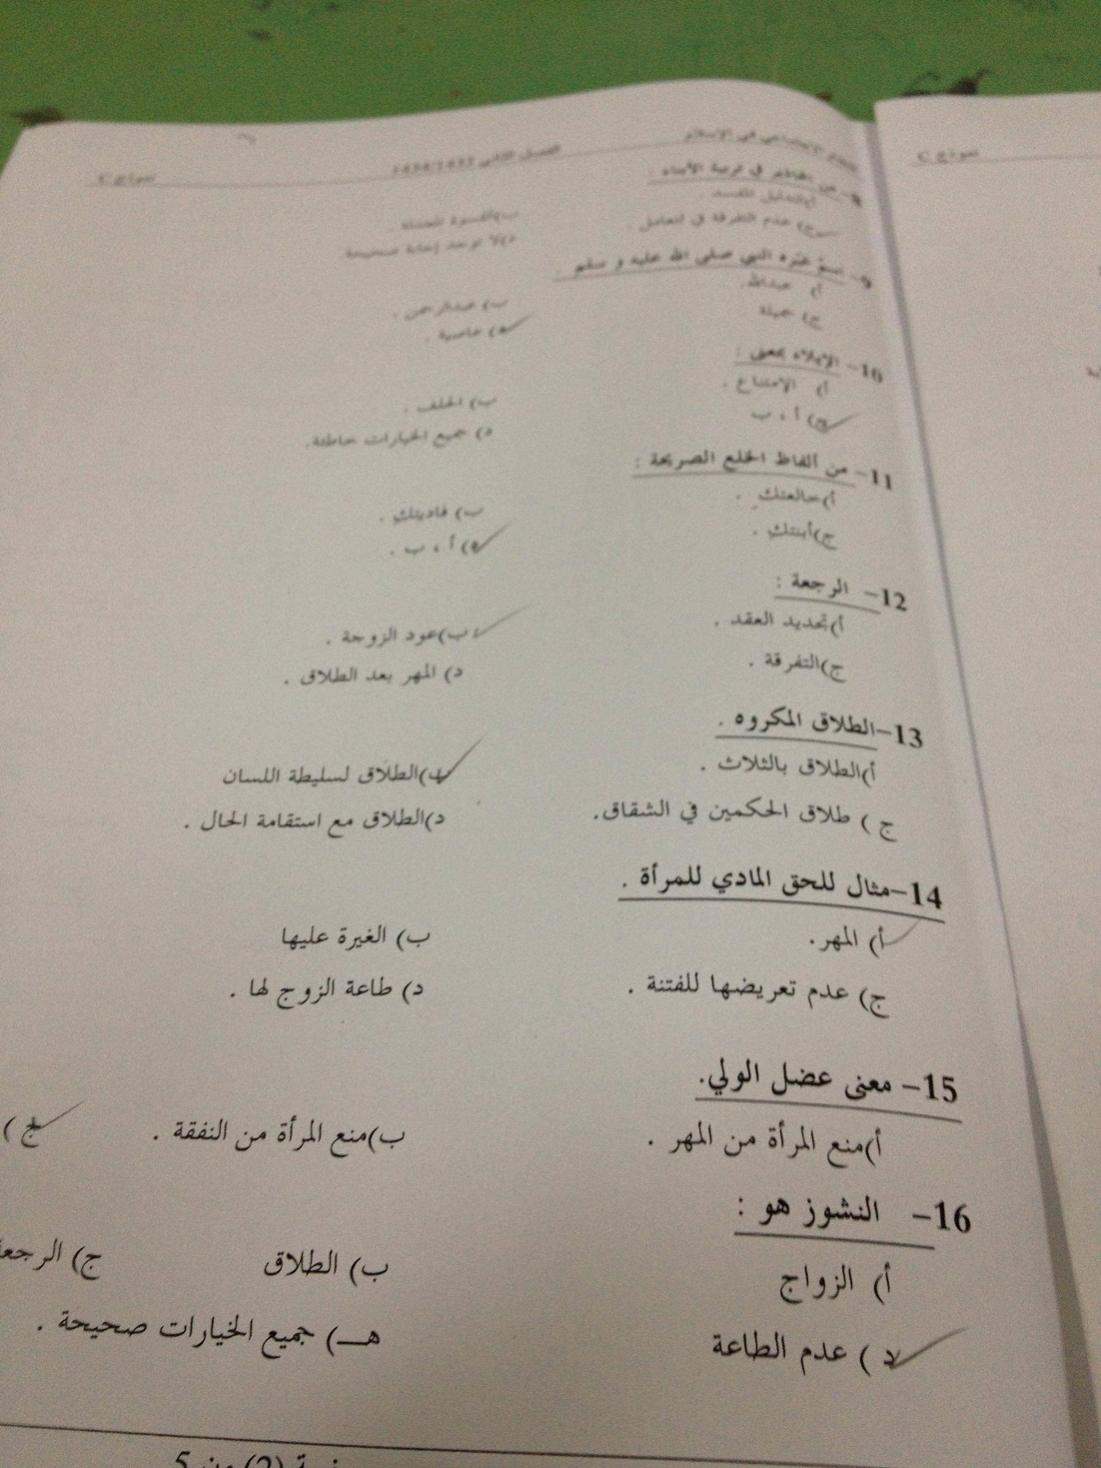 النظام الاجتماعي في الإسلام الفصل الثاني 1434/1433 نموذج C
نموذج C
8- من المظاهر في تربية الأبناء :
أ)التدليل المفسد . ب)القسوة
ج) عدم التفرقة في التعامل . د)لا توجد إجابة صحيحة
9- اسم غيّره النبي صلى الله عليه و سلم .
أ) عبدالله. ب) عبدالرحمن .
ج) جميلة د) عاصية .
10- الإيلاء بمعنى :
أ) الامتناع . ب) الحلف .
ج) أ ، ب د) جميع الخيارات خاطئة.
11- من ألفاظ الخلع الصريحة :
أ)خالعتك . ب) فاديتك .
ج)أبنتك . د) أ ، ب .
12- الرجعة :
أ)تجديد العقد . ب)عود الزوجة .
ج)التفرقة . د) المهر بعد الطلاق .
13-الطلاق المكروه .
أ)الطلاق بالثلاث . ب)الطلاق لسليطة اللسان
ج ) طلاق الحكمين في الشقاق. د)الطلاق مع استقامة الحال .
14-مثال للحق المادي للمرأة .
أ) المهر. ب) الغيرة عليها
ج) عدم تعريضها للفتنة . د) طاعة الزوج لها .
15- معنى عضل الولي.
أ)منع المرأة من المهر . ب)منع المرأة من النفقة . ج)
16- النشوز هو :
أ) الزواج ب) الطلاق ج) الرجعة
د ) عدم الطاعة هـ) جميع الخيارات صحيحة .
(2) من 5